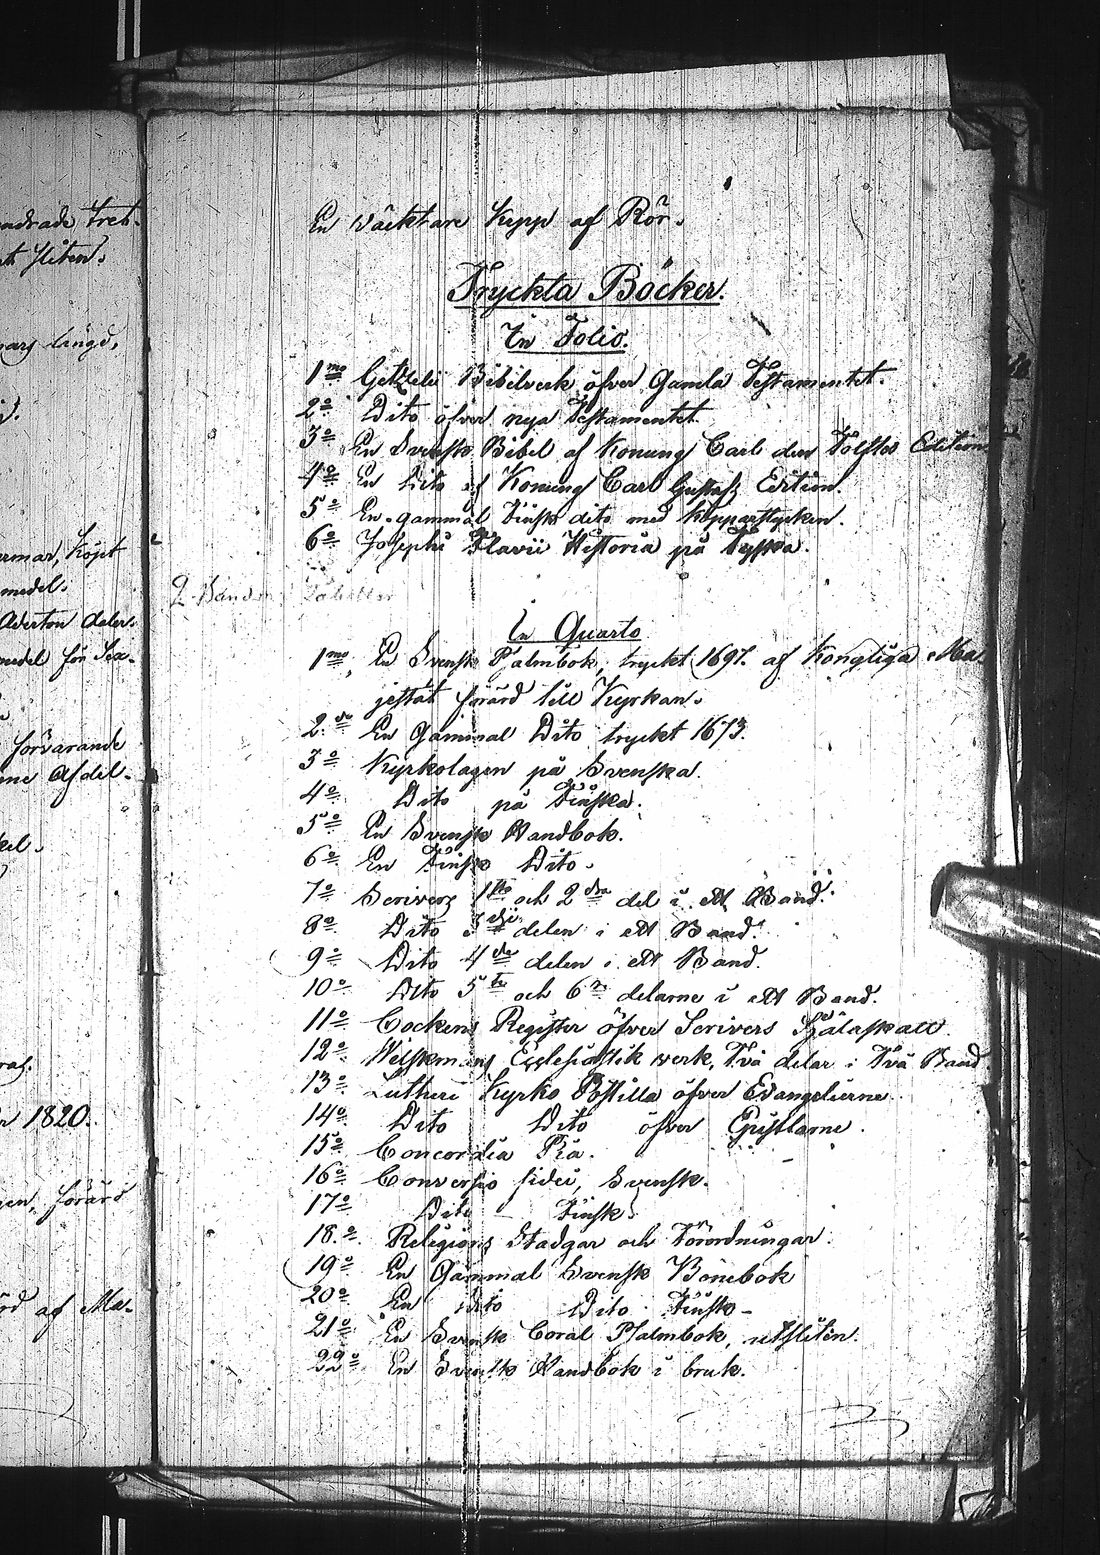 ndrade tret-
sliten.
längd,
rmar, köpt
medel.
Aderton daler.
medel för
förvarande
ne Afdel-
1820.
förärd
af Ma-
En väcktare Kepp af Rör.
Tryckta Böcker.
In Folio.
1mo Getzelii Bibelverk öfver Gamla Testamentet.
2o Dito öfver nya Testamentet
3o En Svensk Bibel af Konung Carl den Tolftes Edition
4o En Dito af Konung Carl Gustafs Edition.
5o En gammal Finsk dito med kopparstycken.
6o Josephi Flavii Historia på Tyska.
2 Band
In Quarto
1mo En Svensk Psalmbok, tryckt 1697. af Kongliga Ma-
jestät förärd till Kyrkan.
2do En Gammal Dito tryckt 1673.
3o Kyrkolagen på Svenska.
4o Dito på Finska.
5o En Svensk Handbok.
6o En Finsk Dito.
7o Scrivers 1sta och 2dra del i ett Band.
8o Dito 3dje delen i ett Band.
9o Dito 4de delen i ett Band.
10o Dito 5te och 6te delarne i ett Band.
11o Cockens Register öfver Scrivers Själaskatt
12o Wilskmans Ecclesiastik werk, Två delar i Två Band
13o Lutheri Kyrko Postilla öfver Evangelierne
14o Dito Dito öfver Epistlarne.
15o Concordia Pia.
16o Conversio fidei, Svensk.
17o Dito Finsk.
18o Religions Stadgar och Förordningar.
19o En Gammal Svensk Bönebok
20o En Dito Dito Finsk-
21o En Svensk Coral Psalmbok, utsliten.
22o En Svensk Handbok i bruk.